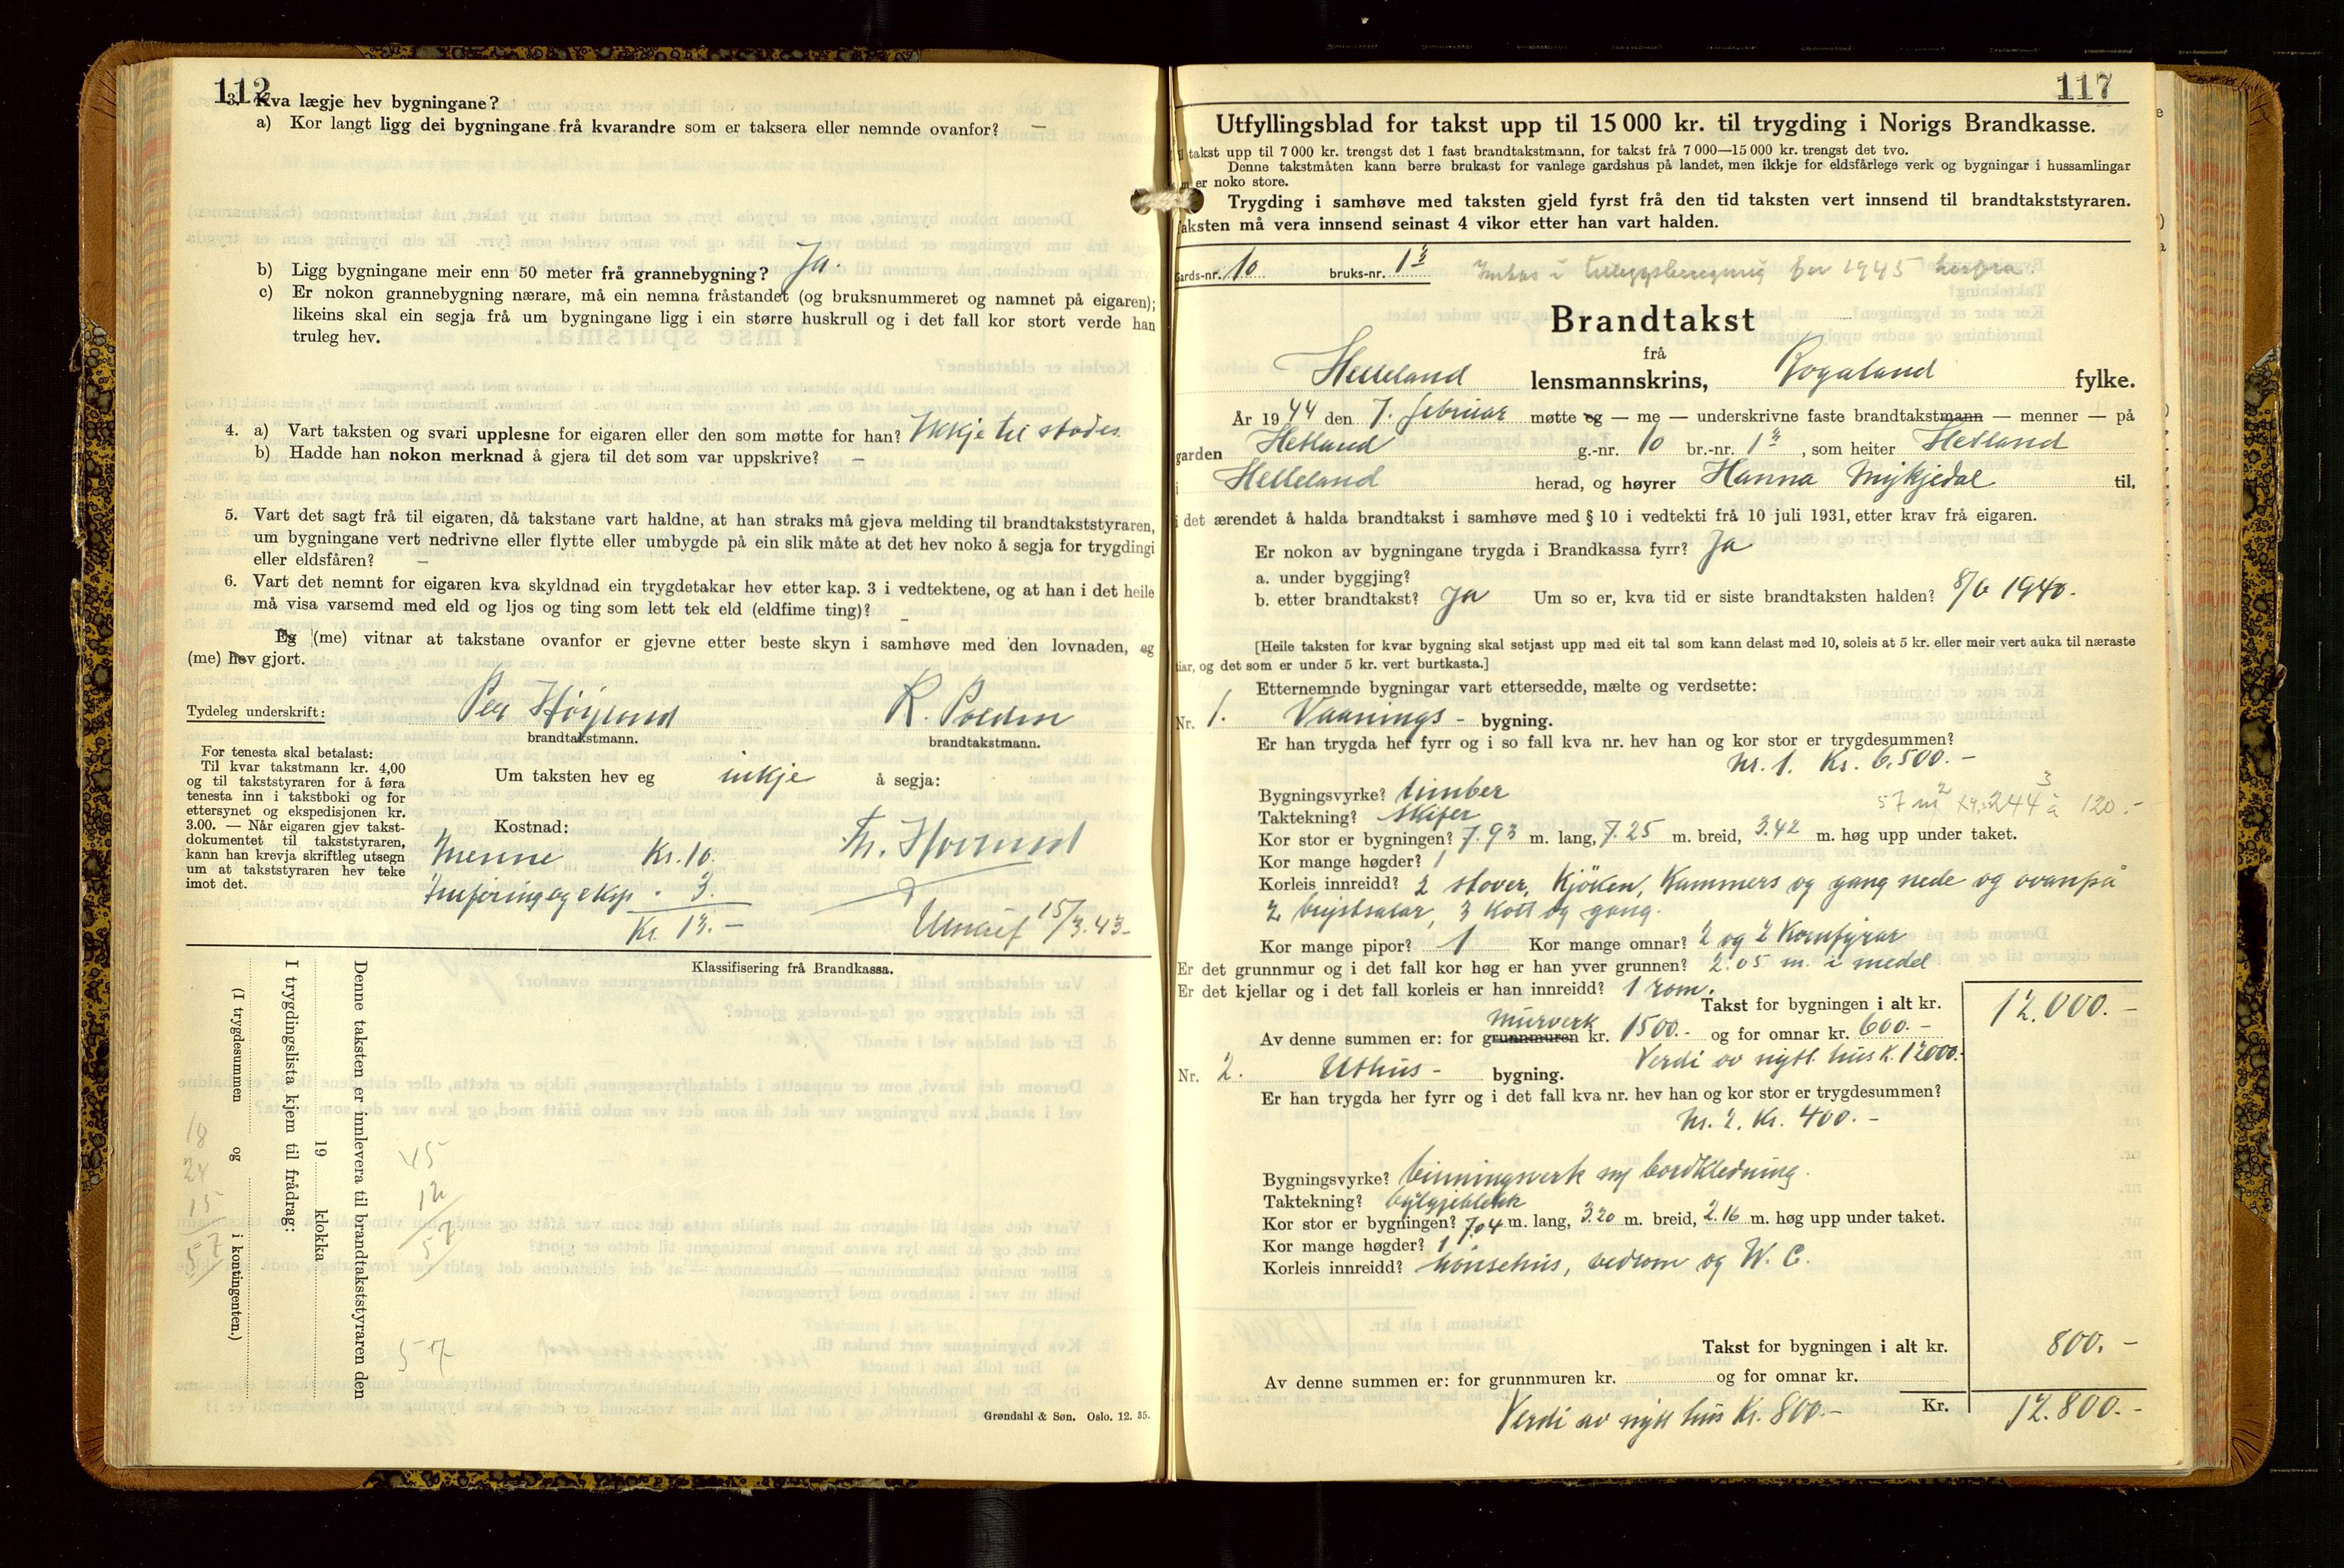 112
3. Kva lægje hev bygningane?
a) Kor langt ligg dei bygningane frå kvarandre som er taksera eller nemnde ovanfor? –
b) Ligg bygningane meir enn 50 meter frå grannebygning? Ja.
c) Er nokon grannebygning nærare, må ein nemna fråstandet (og bruksnummeret og namnet på eigaren);
likeins skal ein segja frå um bygningane ligg i ein større huskrull og i det fall kor stort verde han
truleg hev.
4. a) Vart taksten og svari upplesne for eigaren eller den som møtte for han? Ikkje til stades.
b) Hadde han nokon merknad å gjera til det som var uppskrive? –
5. Vart det sagt frå til eigaren, då takstane vart haldne, at han straks må gjeva melding til brandtakststyraren,
um bygningane vert nedrivne eller flytte eller umbygde på ein slik måte at det hev noko å segja for trygdingi
eller eldsfåren? –
6. Vart det nemnt for eigaren kva skyldnad ein trygdetakar hev etter kap. 3 i vedtektene, og at han i det heile
må visa varsemd med eld og ljos og ting som lett tek eld (eldfime ting)? –
Eg (me) vitnar at takstane ovanfor er gjevne etter beste skyn i samhøve med den lovnaden, eg
(me) hev gjort.
Tydeleg underskrift: Per Høyland R. Polden
brandtakstmann. brandtakstmann.
For tenesta skal betalast:
Til kvar takstmann kr. 4,00
og til takststyraren for å føra
tenesta inn i takstboki og for
ettersynet og ekspedisjonen kr.
3.00. — Når eigaren gjev takst-
dokumentet til takststyraren,
kann han krevja skriftleg utsegn
um at takststyraren hev teke
imot det.
Um taksten hev eg inkje å segja:
Kostnad:
Menne Kr. 10.
Innføring og eksp. " 3
Kr. 13. –
15/3.43–
Klassifisering frå Brandkassa.
Denne taksten er innlevera til brandtakststyraren den
19 klokka
I trygdingslista kjem til frådrag:
(I trygdesummen og i kontingenten.)
18
24
15
57
45
12
57
57
Grøndahl & Søn. Oslo. 12. 35.
117
Utfyllingsblad for takst upp til 15 000 kr. til trygding i Norigs Brandkasse.
takst upp til 7 000 kr. trengst det 1 fast brandtakstmann, for takst frå 7 000—15 000 kr. trengst det tvo.
Denne takstmåten kann berre brukast for vanlege gardshus på landet, men ikkje for eldsfårlege verk og bygningar i hussamlingar
er noko store.
Trygding i samhøve med taksten gjeld fyrst frå den tid taksten vert innsend til brandtakststyraren.
aksten må vera innsend seinast 4 vikor etter han vart halden.
Gards-nr. 10 bruks-nr. 1 i tilleggsberegning for 1945 herfra.
Brandtakst
frå
Helleland lensmannskrins, Rogaland fylke.
År 1944 den 7. februar møtte eg — me — underskrivne faste brandtakstmann — menner — på
garden Hetland g.-nr. 10 br.-nr. 1, som heiter Hetland
i Helleland herad, og høyrer Hanna Mykjedal til,
i det ærendet å halda brandtakst i samhøve med § 10 i vedtekti frå 10 juli 1931, etter krav frå eigaren.
Er nokon av bygningane trygda i Brandkassa fyrr? Ja
a. under byggjing?
b. etter brandtakst? Ja Um so er, kva tid er siste brandtaksten halden? 8/6 1940.
[Heile taksten for kvar bygning skal setjast upp med eit tal som kann delast med 10, soleis at 5 kr. eller meir vert auka til næraste
tiar, og det som er under 5 kr. vert burtkasta.]
Etternemnde bygningar vart ettersedde, mælte og verdsette:
Nr. 1. Vaanings- bygning.
Er han trygda her fyrr og i so fall kva nr. hev han og kor stor er trygdesummen?
Nr. 1. Kr. 6.500. –
Bygningsvyrke? timber 57 m² 244 à 120.–
Taktekning? skifer
Kor stor er bygningen? 7.93 m. lang, 7.25 m. breid, 3.42 m. høg upp under taket.
Kor mange høgder? 1
Korleis innreidd? 2 stover, Kjöken, Kammers og gang nede og ovanpå
2 brystsalar, 3 kott og gang.
Kor mange pipor? 1 Kor mange omnar? 2 og 2 Komfyrar
Er det grunnmur og i det fall kor høg er han yver grunnen? 2.05 m. i medel
Er det kjellar og i det fall korleis er han innreidd? 1 rom.
Takst for bygningen i alt kr. 12.000.–
Av denne summen er: for grunnmuren murverk kr. 1500.– og for omnar kr. 600.–
Verdi av nytt hus K. 12000.–
Nr. 2. Uthus- bygning.
Er han trygda her fyrr og i det fall kva nr. hev han og kor stor er trygdesummen?
Nr. 2. Kr. 400. –
Bygningsvyrke? binningsverk m/ bordkledning.
Taktekning? bylgjeblekk
Kor stor er bygningen? 7.04 m. lang, 3.20 m. breid, 2.16 m. høg upp under taket.
Kor mange høgder? 1
Korleis innreidd? hönsehus, vedrom og W. C.
Takst for bygningen i alt kr. 800. –
Av denne summen er: for grunnmuren kr. og for omnar kr.
Kr. 12.800.–
Verdi av nytt hus Kr. 800.–